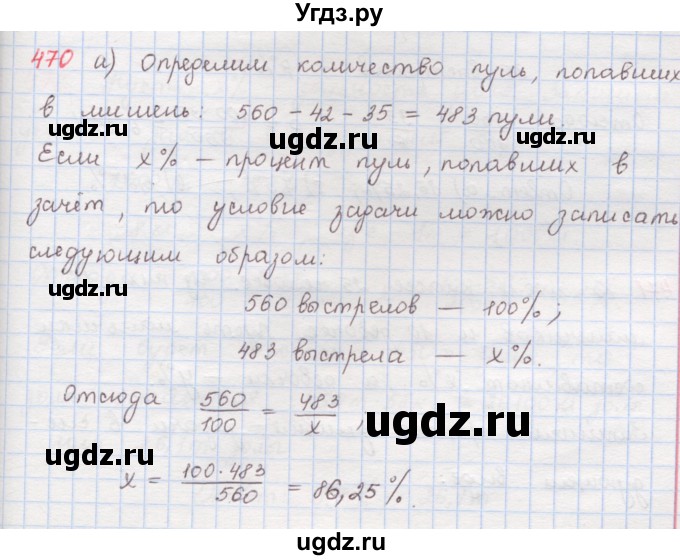 Угдз.ру
470 а) Определим количество пуль, попавших
в мишень: 560 − 42 − 35 = 483 пули.
ugdz.ru ugdz.ru ugdz.ru
Если x% – процент пуль, попавших в
зачёт, то условие задачи можно записать
следующим образом:
ugdz.ru ugdz.ru
560 выстрелов — 100%;
483 выстрела — x%.
Отсюда 560/100 = 483/x,
ugdz.ru
ugdz.ru
x = 100·483/560 = 86,25%.
ugdz.ru ugdz.ru
Угдз.ру